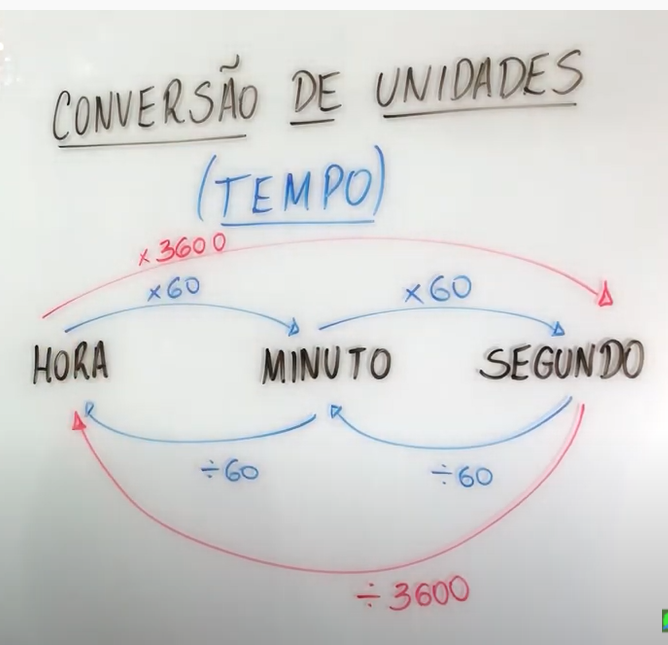 CONVERSÃO DE UNIDADES
(TEMPO)
×3600
×60 ×60
HORA MINUTO SEGUNDO
÷60 ÷60
÷3600